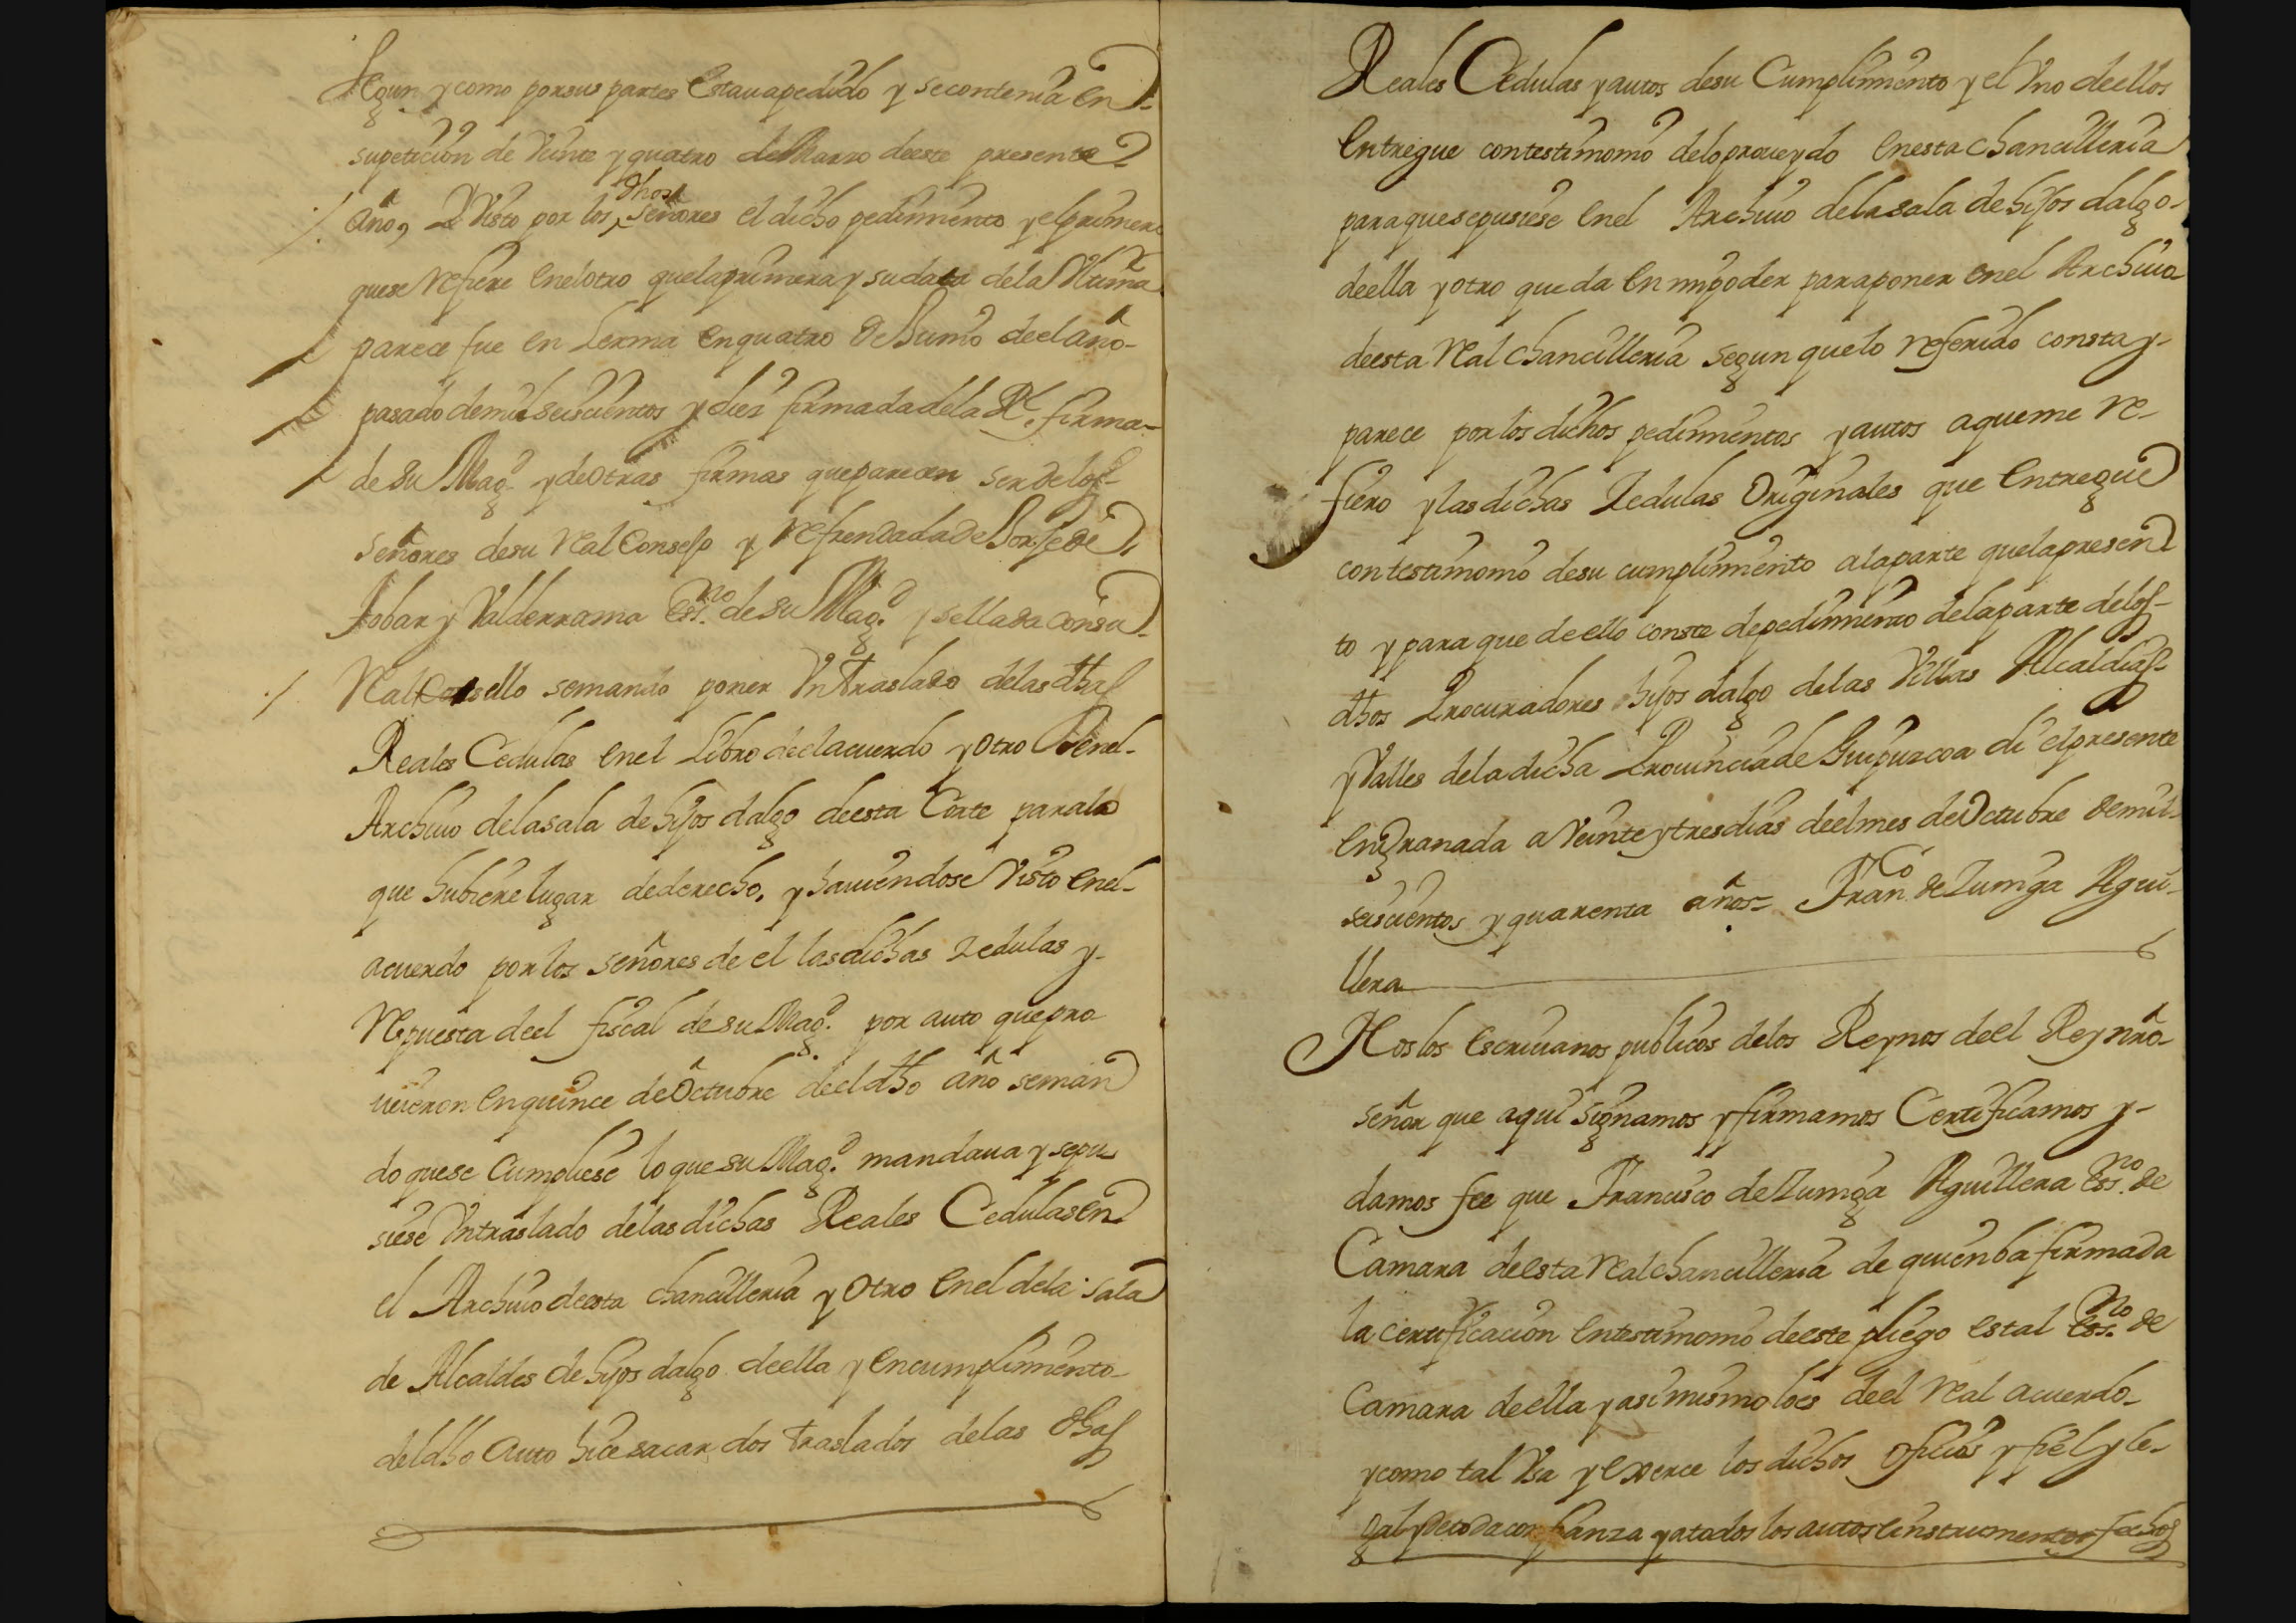 Segun y como por sus partes estaua pedido y se contenia en
su peticion de Veinte y quatro de Marzo de este presente
año, Visto por los dhos señores el dicho pedimiento y el primero
que se refiere en el otro que la primera y su data de la Vltima
parece fue en Lerma en quatro de Junio de el año
pasado de mil seiscientos y diez firmada de la Rl. firma
de su Magd. y de otras firmas que parecen ser de los
señores de su Real Consejo y refrendada de Jorje de
Tobar y Valderrama Essno. de su Magd. y sellada con su
Real sello se mando poner Vn traslado de las dhas
Reales Cedulas en el Libro de el acuerdo y otro en el
Archiuo de la sala de hijos dalgo de esta Corte para lo
que hubiere lugar de derecho, y hauiendose Visto en el
acuerdo por los señores de el las dichas Zedulas y
Repuesta de el fiscal de su Magd. por auto que pro
ueieron en quince de Octubre de el dho año se man
do que se Cumpliese lo que su Magd. mandaua y se pu
siese Vn traslado de las dichas Reales Cedulas en
el Archiuo de esta chancilleria y otro en el de la sala
de Alcaldes de hijos dalgo de ella y en cumplimiento
del dho auto hice sacar dos traslados de las dhas
Reales Cedulas y autos de su Cumplimiento y el Vno de ellos
entregue con testimonio de lo proueydo en esta chancilleria
para que se pusiese en el Archiuo de la sala de hijos dalgo
de ella y otro queda en mi poder para poner en el Archiuo
de esta Real chancilleria segun que lo referido consta y
parece por los dichos pedimientos y autos a que me re
fiero y las dichas Zedulas Originales que entregue
con testimonio de su cumplimiento a la parte que la presen
to y para que de ello conste de pedimiento de la parte de los
dhos Procuradores hijos dalgo de las Villas Alcaldias
y Valles de la dicha Prouincia de Guipuzcoa di el presente
en Granada a Veinte y tres dias de el mes de Octubre de mil
seiscientos y quarenta años = Franco. de Zuniga Agui
llera
Nos los escriuanos publicos de los Reynos de el Rey nro
señor que aqui signamos y firmamos Certificamos y
damos fee que Francisco de Zuniga Aguillera Essno. de
Camara de esta Real chancilleria de quien ba firmada
la certificacion en testimonio de este pliego es tal Essno. de
Camara de ella y asimismo lo es de el Real acuerdo
y como tal Vsa y exerce los dichos oficios y fiel y le
gal y de toda confianza y a todos los autos e instrumentos fechos